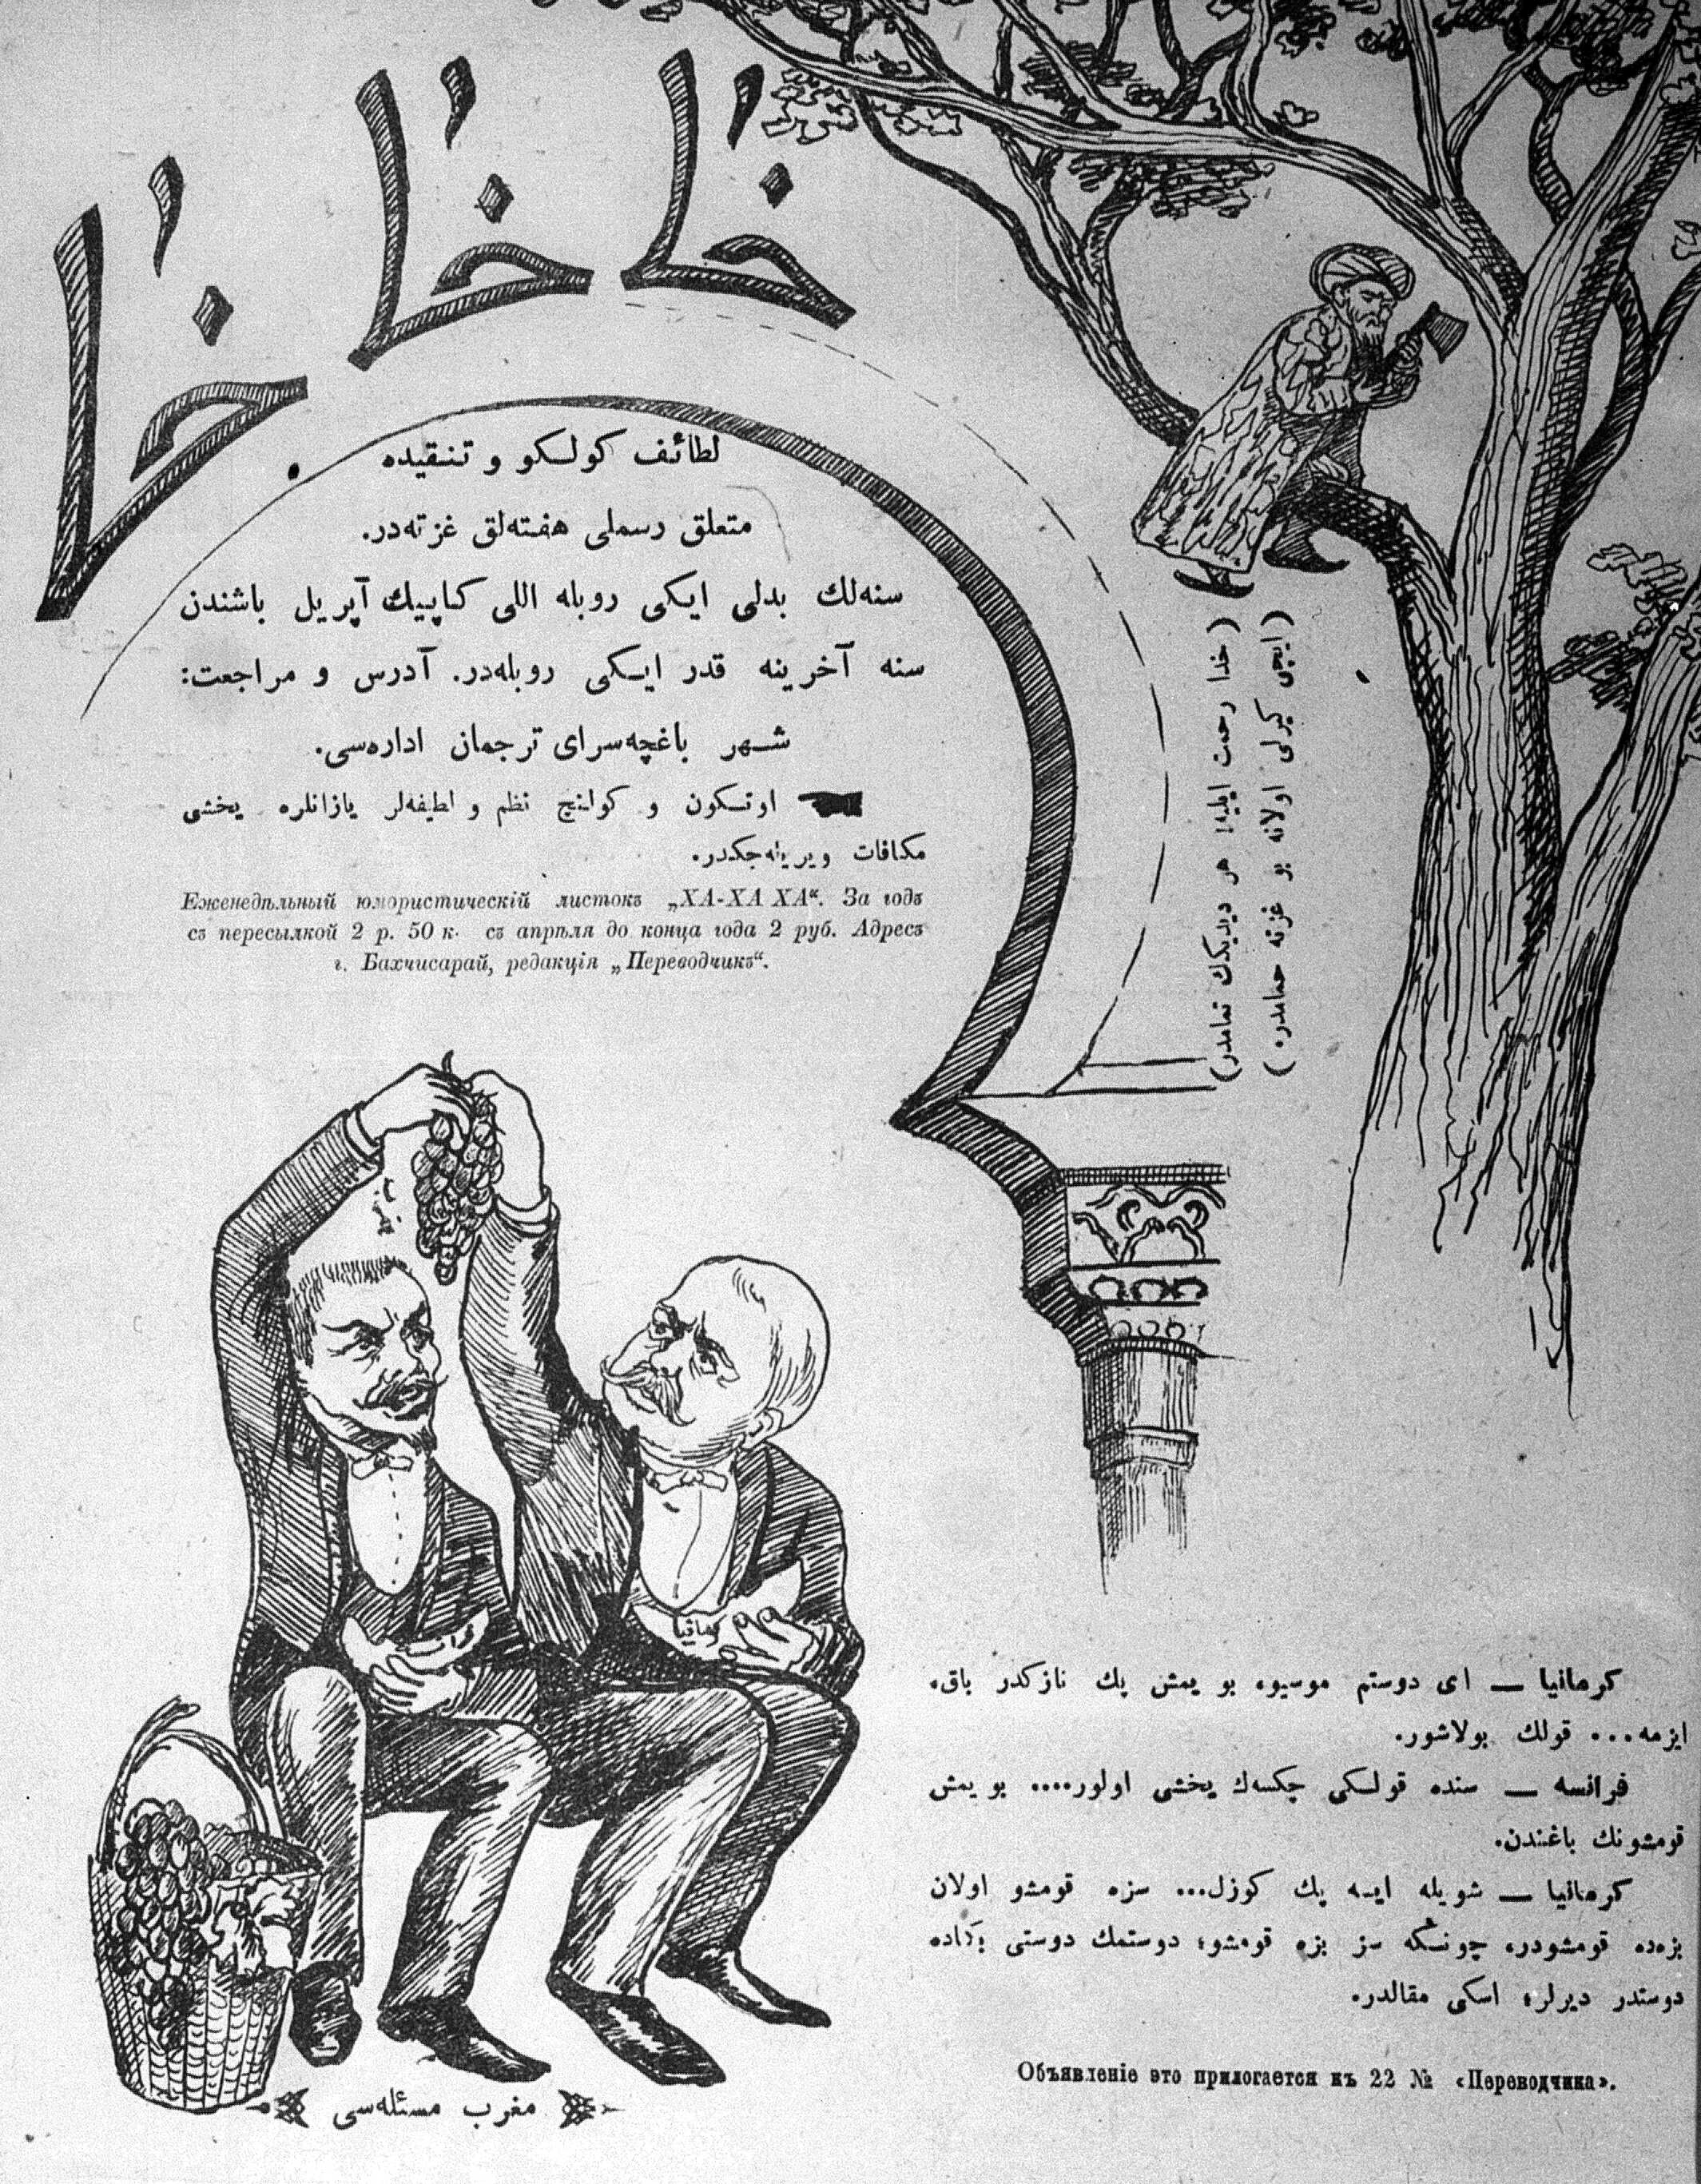 خا خا خا
لطائف كولكو و تنقيده
متعلق رسملى هفته‌لق غزته‌در.
سنه‌لك بدلى ايكى روبله اللى كاپيك آپريل باشندن
سنه آخرينه قدر ايكى روبله‌در. آدرس و مراجعت:
شهر باغچه‌سراى ترجمان اداره‌سى.
اوتكون و كولنچ نظم و لطيفه‌لر يازانلره يخشى
مكافات ويريله‌جكدر.
Еженедѣльный юмористическій листокъ „ХА-ХА ХА“. За годъ
съ пересылкой 2 р. 50 к. съ апрѣля до конца года 2 руб. Адресъ
г. Бахчисарай, редакція „Переводчикъ“.
(خدا رحمت ايليه! هر ديديكك تمامدر)
(ايچى كيرلى اولانه بو غزته حمامدر.)
فرانسه
كرمانيا
كرمانيا — اى دوستم موسيو، بو يمش پك نازكدر باق،
ايزمه... قولك بولاشور.
فرانسه — سنده قولكى چكسه‌ك يخشى اولور.... بو يمش
قومشونك باغندن.
كرمانيا — شويله ايسه پك كوزل... سزه قومشو اولان
بزه‌ده قومشودر، چونكه سز بزه قومشو؛ دوستمك دوستى
دوستدر ديرلر؛ اسكى مقالدر.
مغرب مسئله‌سى
Объявленіе это прилогается къ 22 № «Переводчика».